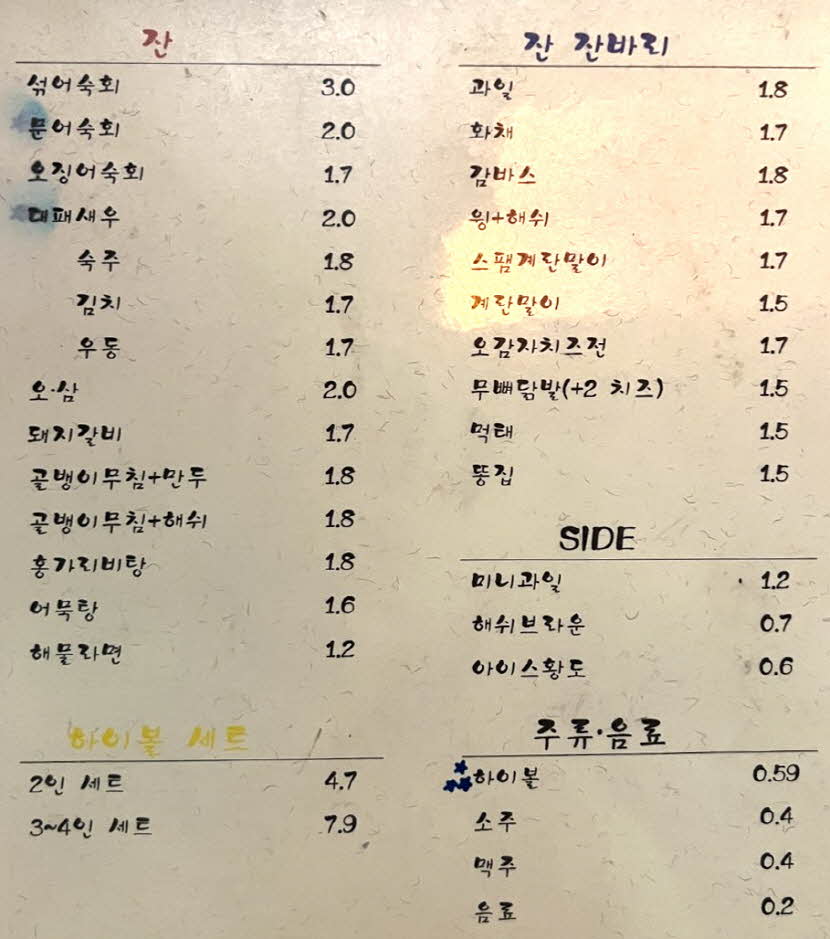 잔
섞어숙회 3.0
문어숙회 2.0
오징어숙회 1.7
대패새우 2.0
숙주 1.8
김치 1.7
우동 1.7
오·삼 2.0
돼지갈비 1.7
골뱅이무침+만두 1.8
골뱅이무침+해쉬 1.8
홍가리비탕 1.8
어묵탕 1.6
해물라면 1.2
하이볼 세트
2인 세트 4.7
3~4인 세트 7.9
잔 잔바리
과일 1.8
화채 1.7
감바스 1.8
윙+해쉬 1.7
스팸계란말이 1.7
계란말이 1.5
오감자치즈전 1.7
무뼈닭발(+2 치즈) 1.5
먹태 1.5
똥집 1.5
SIDE
미니과일 1.2
해쉬브라운 0.7
아이스황도 0.6
주류·음료
하이볼 0.59
소주 0.4
맥주 0.4
음료 0.2